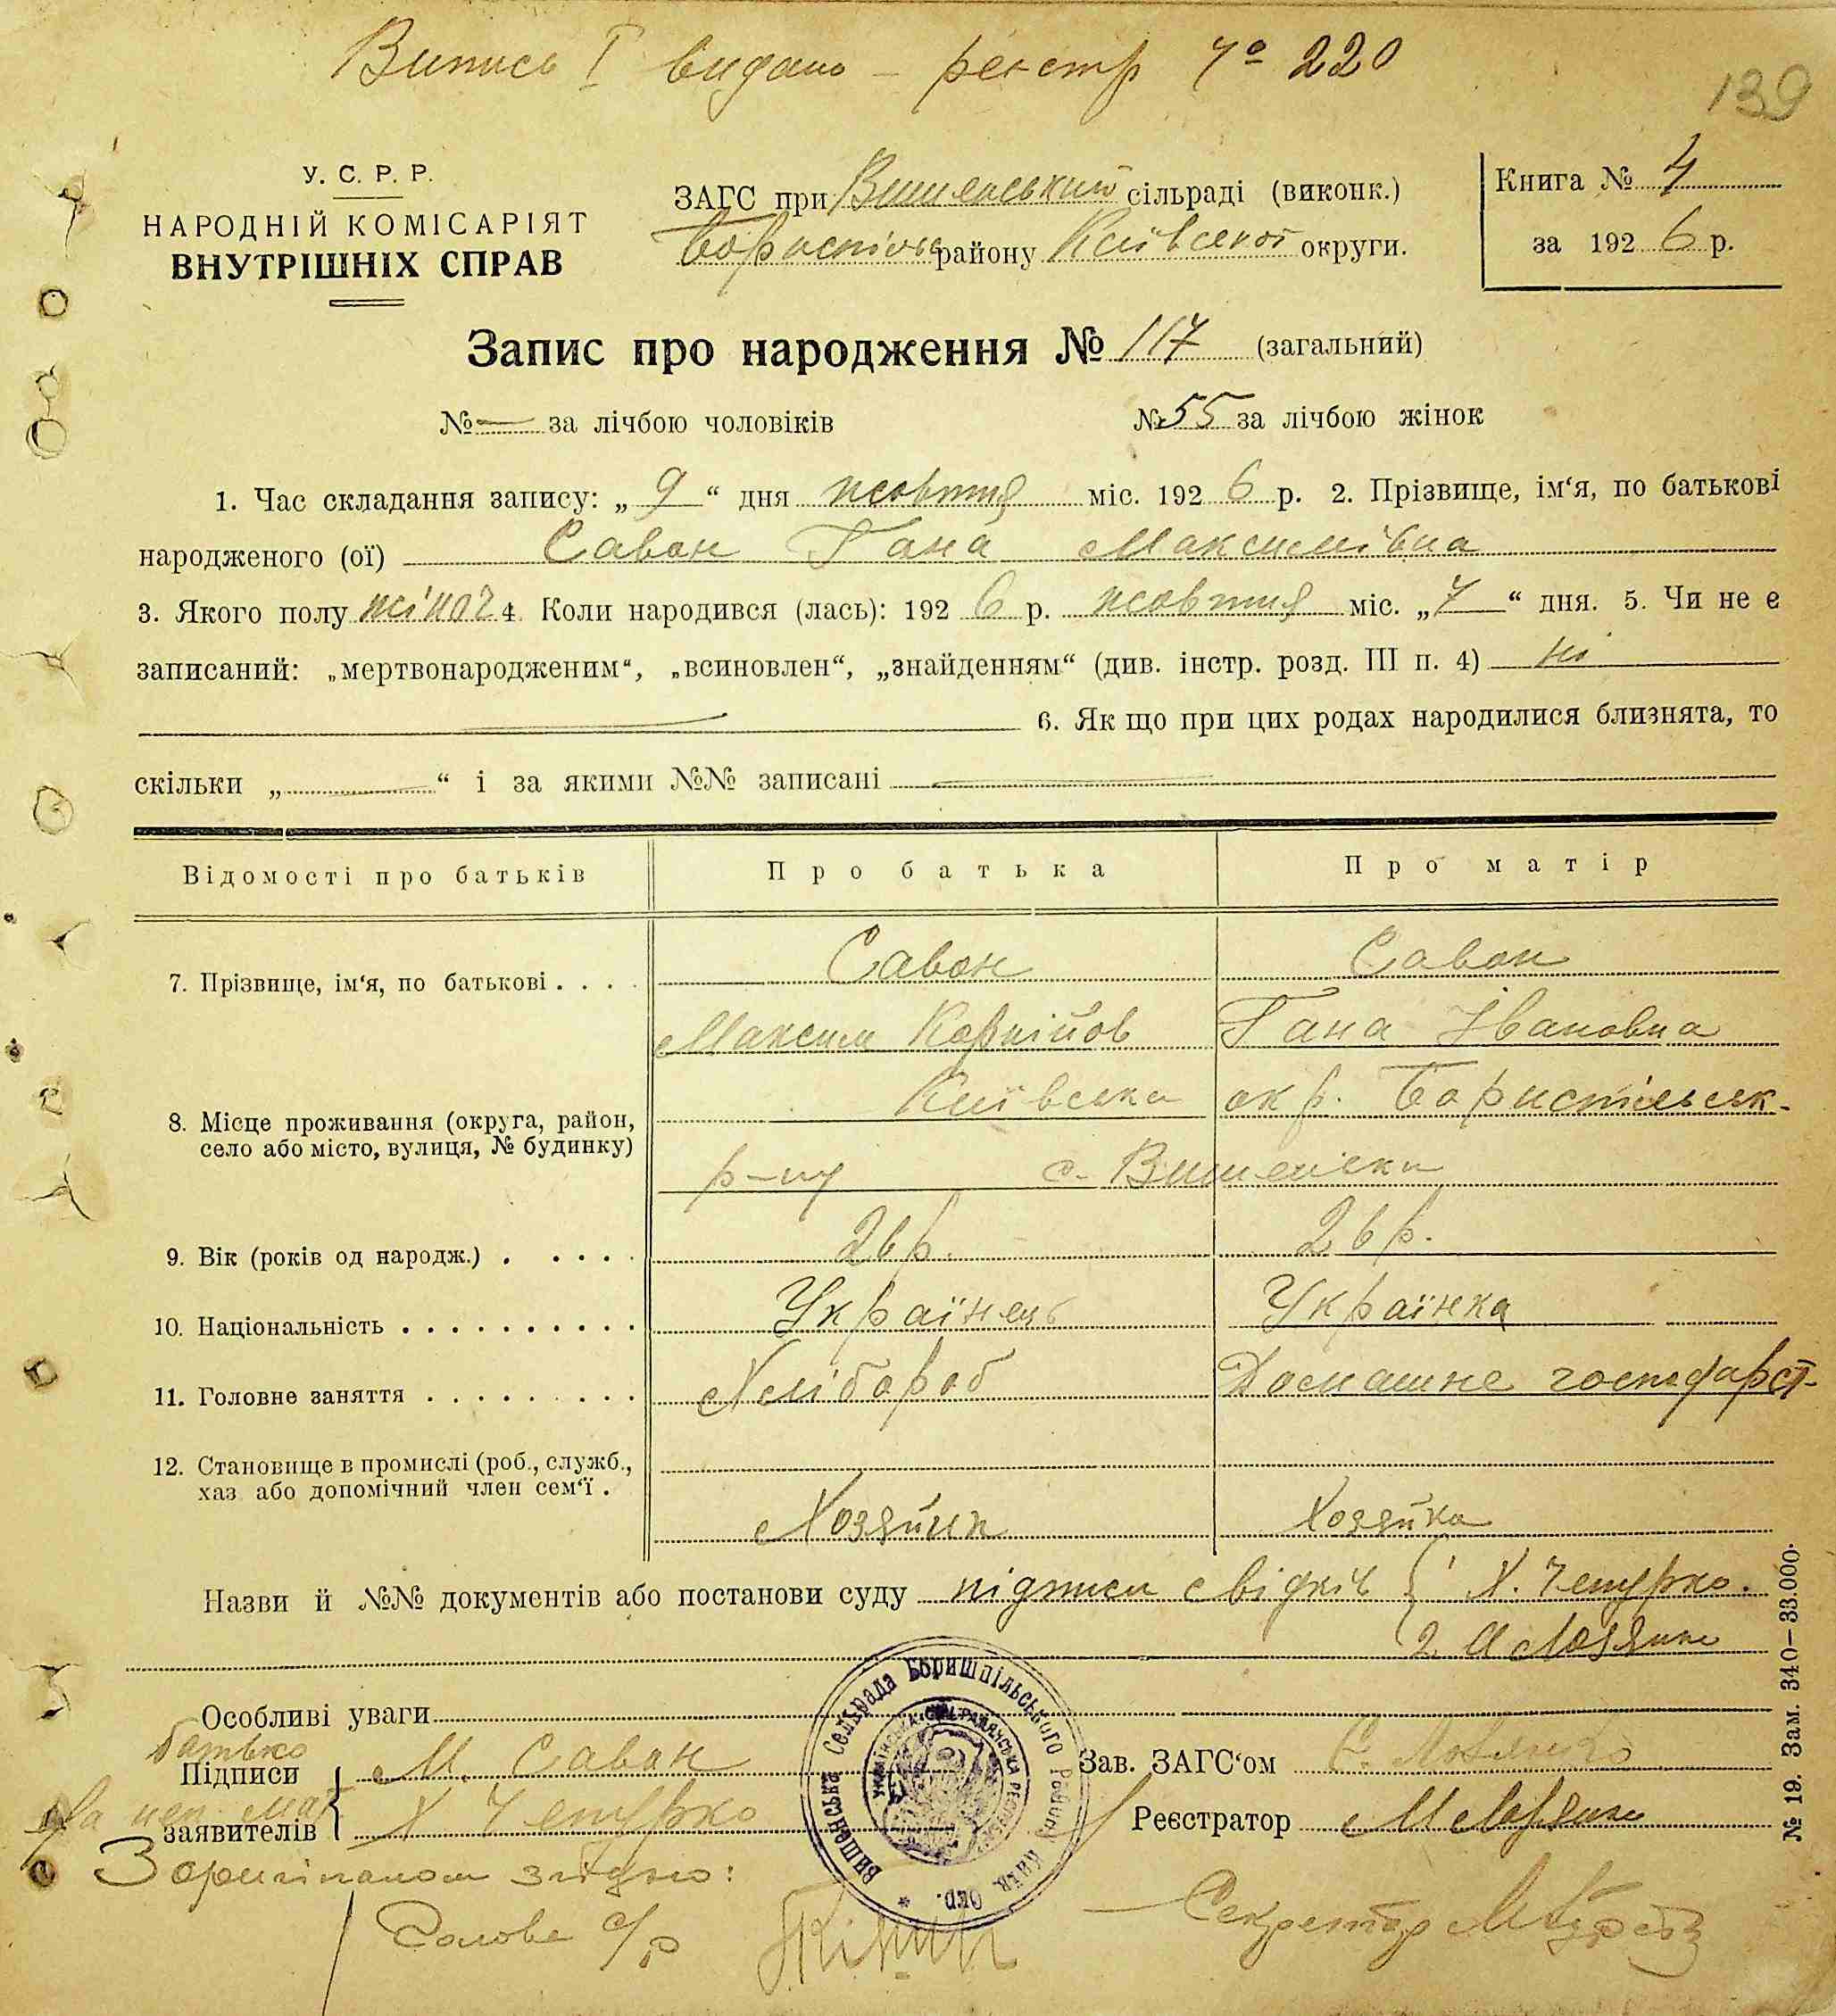 Випись I видано – реєстр № 220
139
У. С. Р. Р.
НАРОДНІЙ КОМІСАРІЯТ
ВНУТРІШНІХ СПРАВ
ЗАГС при Вишенський сільраді (виконк.)
Бориспільс району Київської округи.
Книга № 4
за 192 6 р.
Запис про народження № 117 (загальний)
№ — за лічбою чоловіків № 55 за лічбою жінок
1. Час складання запису: „ 9 “ дня жовтня міс. 192 6 р. 2. Прізвище, ім‘я, по батькові
народженого (ої) Саван Гана Максимівна
3. Якого полу жіноч 4. Коли народився (лась): 192 6 р. жовтня міс. „ 7 “ дня. 5. Чи не є
записаний: „мертвонародженим“, „всиновлен“, „знайденням“ (див. інстр. розд. III п. 4) ні
6. Як що при цих родах народилися близнята, то
скільки „ — “ і за якими №№ записані —
Відомості про батьків Про батька Про матір
7. Прізвище, ім‘я, по батькові . . . . Саван Саван
Максим Корнійов Гана Івановна
8. Місце проживання (округа, район, село або місто, вулиця, № будинку) Київська окр. Бориспільськ.
р-ну с. Вишеньки
9. Вік (років од народж.) . . . . . 26 р. 26 р.
10. Національність . . . . . . . . . . Українець Українка
11. Головне заняття . . . . . . . . . Хлібороб Домашнє господарст.
12. Становище в промислі (роб., служб., хаз або допомічний член сем‘ї . Хозяйин Хозяйка
Назви й №№ документів або постанови суду підписи свідків { 1 Х. Чепурко.
2.
Особливі уваги
батько
Підписи М. Саван
за неп.
заявителів Х Чепурко
Зав. ЗАГС‘ом С.
Реєстратор М
Вишенська Сельрада Боришпільського Району Київ. Окр.
З оригіналом згідно:
Голова с/р
Секретар
№ 19. Зам. 340–33.000.